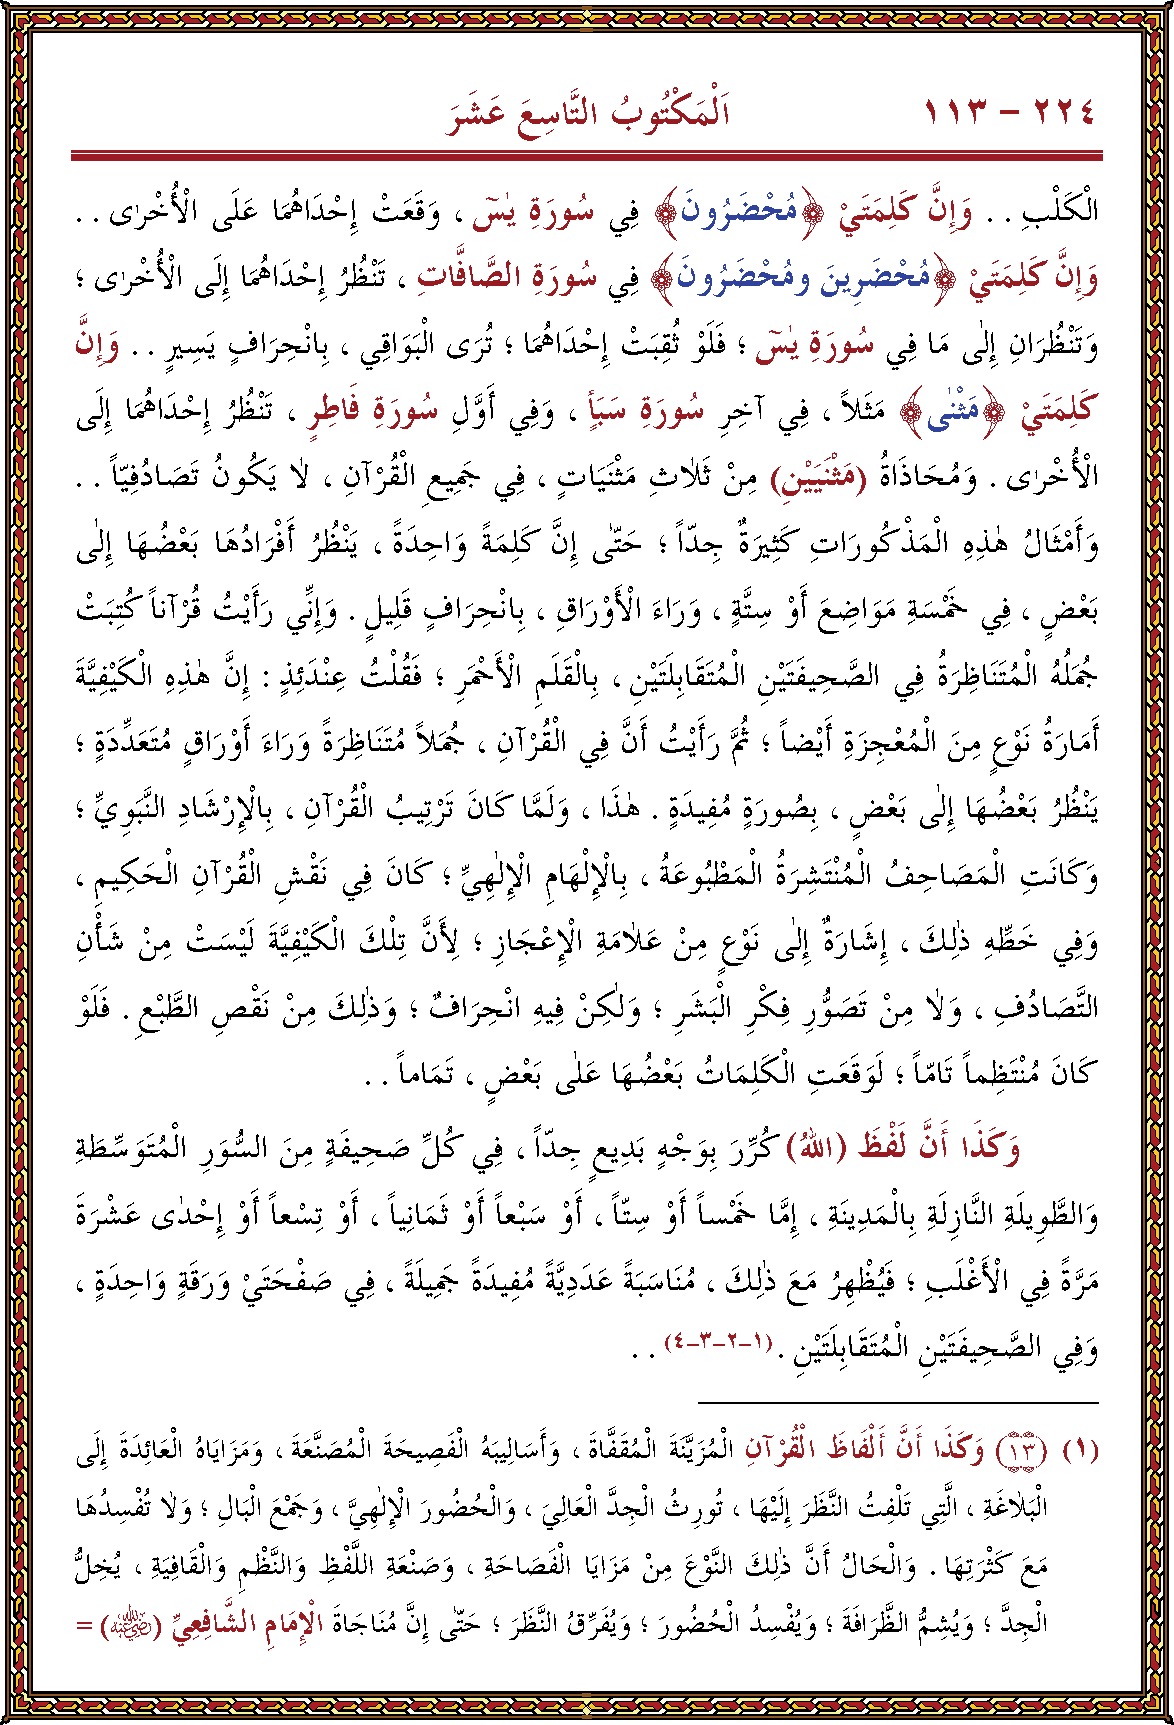 ٢٢٤ - ١١٣ اَلْمَكْتُوبُ التَّاسِعَ عَشَرَ
الْكَلْبِ . . وَإِنَّ كَلِمَتَيْ ﴿مُحْضَرُونَ﴾ فِي سُورَةِ يٰسٓ ، وَقَعَتْ إِحْدَاهُمَا عَلَى الْأُخْرٰى . .
وَإِنَّ كَلِمَتَيْ ﴿مُحْضَرِينَ ومُحْضَرُونَ﴾ فِي سُورَةِ الصَّافَّاتِ ، تَنْظُرُ إِحْدَاهُمَا إِلَى الْأُخْرٰى ؛
وَتَنْظُرَانِ إِلٰى مَا فِي سُورَةِ يٰسٓ ؛ فَلَوْ ثُقِبَتْ إِحْدَاهُمَا ؛ تُرَى الْبَوَاقِي ، بِانْحِرَافٍ يَسِيرٍ . . وَإِنَّ
كَلِمَتَيْ ﴿مَثْنٰى﴾ مَثَلاً ، فِي آخِرِ سُورَةِ سَبَأٍ ، وَفِي أَوَّلِ سُورَةِ فَاطِرٍ ، تَنْظُرُ إِحْدَاهُمَا إِلَى
الْأُخْرٰى . وَمُحَاذَاةُ (مَثْنَيَيْنِ) مِنْ ثَلاٰثِ مَثْنَيَاتٍ ، فِي جَمِيعِ الْقُرْآنِ ، لاٰ يَكُونُ تَصَادُفِيّاً . .
وَأَمْثَالُ هٰذِهِ الْمَذْكُورَاتِ كَثِيرَةٌ جِدّاً ؛ حَتّٰى إِنَّ كَلِمَةً وَاحِدَةً ، يَنْظُرُ أَفْرَادُهَا بَعْضُهَا إِلٰى
بَعْضٍ ، فِي خَمْسَةِ مَوَاضِعَ أَوْ سِتَّةٍ ، وَرَاءَ الْأَوْرَاقِ ، بِانْحِرَافٍ قَلِيلٍ . وَإِنِّي رَأَيْتُ قُرْآناً كُتِبَتْ
جُمَلُهُ الْمُتَنَاظِرَةُ فِي الصَّحِيفَتَيْنِ الْمُتَقَابِلَتَيْنِ ، بِالْقَلَمِ الْأَحْمَرِ ؛ فَقُلْتُ عِنْدَئِذٍ : إِنَّ هٰذِهِ الْكَيْفِيَّةَ
أَمَارَةُ نَوْعٍ مِنَ الْمُعْجِزَةِ أَيْضاً ؛ ثُمَّ رَأَيْتُ أَنَّ فِي الْقُرْآنِ ، جُمَلاً مُتَنَاظِرَةً وَرَاءَ أَوْرَاقٍ مُتَعَدِّدَةٍ ؛
يَنْظُرُ بَعْضُهَا إِلٰى بَعْضٍ ، بِصُورَةٍ مُفِيدَةٍ . هٰذَا ، وَلَمَّا كَانَ تَرْتِيبُ الْقُرْآنِ ، بِالْإِرْشَادِ النَّبَوِيِّ ؛
وَكَانَتِ الْمَصَاحِفُ الْمُنْتَشِرَةُ الْمَطْبُوعَةُ ، بِالْإِلْهَامِ الْإِلٰهِيِّ ؛ كَانَ فِي نَقْشِ الْقُرْآنِ الْحَكِيمِ ،
وَفِي خَطِّهِ ذٰلِكَ ، إِشَارَةٌ إِلٰى نَوْعٍ مِنْ عَلاٰمَةِ الْإِعْجَازِ ؛ لِأَنَّ تِلْكَ الْكَيْفِيَّةَ لَيْسَتْ مِنْ شَأْنِ
التَّصَادُفِ ، وَلاٰ مِنْ تَصَوُّرِ فِكْرِ الْبَشَرِ ؛ وَلٰكِنْ فِيهِ انْحِرَافٌ ؛ وَذٰلِكَ مِنْ نَقْصِ الطَّبْعِ . فَلَوْ
كَانَ مُنْتَظِماً تَامّاً ؛ لَوَقَعَتِ الْكَلِمَاتُ بَعْضُهَا عَلٰى بَعْضٍ ، تَمَاماً . .
وَكَذَا أَنَّ لَفْظَ (اللهُ) كُرِّرَ بِوَجْهٍ بَدِيعٍ جِدّاً ، فِي كُلِّ صَحِيفَةٍ مِنَ السُّوَرِ الْمُتَوَسِّطَةِ
وَالطَّوِيلَةِ النَّازِلَةِ بِالْمَدِينَةِ ، إِمَّا خَمْساً أَوْ سِتّاً ، أَوْ سَبْعاً أَوْ ثَمَانِياً ، أَوْ تِسْعاً أَوْ إِحْدٰى عَشْرَةَ
مَرَّةً فِي الْأَغْلَبِ ؛ فَيُظْهِرُ مَعَ ذٰلِكَ ، مُنَاسَبَةً عَدَدِيَّةً مُفِيدَةً جَمِيلَةً ، فِي صَفْحَتَيْ وَرَقَةٍ وَاحِدَةٍ ،
وَفِي الصَّحِيفَتَيْنِ الْمُتَقَابِلَتَيْنِ .(١-٢-٣-٤) . .
(١) (١٣) وَكَذَا أَنَّ أَلْفَاظَ الْقُرْآنِ الْمُزَيَّنَةَ الْمُقَفَّاةَ ، وَأَسَالِيبَهُ الْفَصِيحَةَ الْمُصَنَّعَةَ ، وَمَزَايَاهُ الْعَائِدَةَ إِلَى
الْبَلاٰغَةِ ، الَّتِي تُلْفِتُ النَّظَرَ إِلَيْهَا ، تُورِثُ الْجِدَّ الْعَالِيَ ، وَالْحُضُورَ الْإِلٰهِيَّ ، وَجَمْعَ الْبَالِ ؛ وَلاٰ تُفْسِدُهَا
مَعَ كَثْرَتِهَا . وَالْحَالُ أَنَّ ذٰلِكَ النَّوْعَ مِنْ مَزَايَا الْفَصَاحَةِ ، وَصَنْعَةِ اللَّفْظِ وَالنَّظْمِ وَالْقَافِيَةِ ، يُخِلُّ
الْجِدَّ ؛ وَيُشِمُّ الظَّرَافَةَ ؛ وَيُفْسِدُ الْحُضُورَ ؛ وَيُفَرِّقُ النَّظَرَ ؛ حَتّٰى إِنَّ مُنَاجَاةَ الْإِمَامِ الشَّافِعِيِّ (رَضِيَ اللهُ عَنْهُ) =